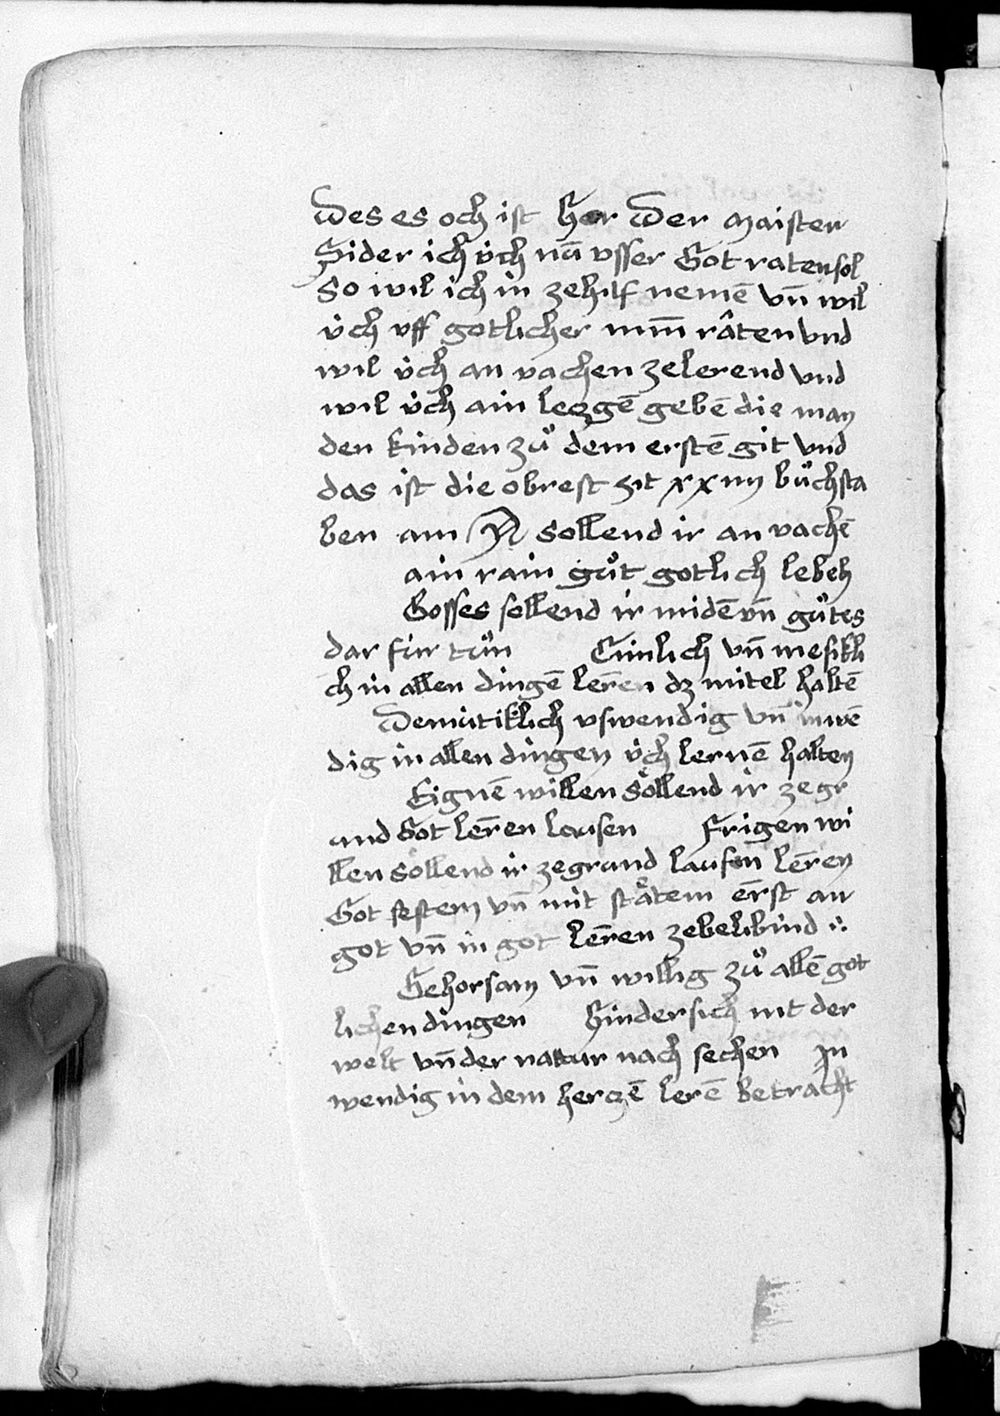 Des es och ist her Der maister
Sider ich v̇ch nū vsser Got raten sol
So wil ich in ze hilf nemē vn̄ wil
v̇ch vff gotlicher min̄ râten vnd
wil v̇ch an vachen ze lerend vnd
wil v̇ch ain leczgē gebē die man
den kinden zů dem erstē git vnd
das ist die obrest zit xxiiij bůchsta
ben am A sollend ir an vachē
ain rain gůt gotlich leben
Bosses sollend ir midē vn̄ gůtes
dar für tůn Cimlich vn̄ mesikli
ch in allen dingē lēren dz mitel haltē
Demůtiklich vswendig vn̄ inwē
dig in allen dingen v̇ch lernē halten
Eignē willen söllend ir ze gr
und Got lēren lausen Frigen wi
llen söllend ir ze grund lausen lēren
Got festem vn̄ mit stätem ērst an
got vn̄ in got lēren ze belibind
Gehorsam vn̄ willig zů allē got
lichen dingen Hindersich nit der
welt vn̄ der natur nach sechen In
wendig in dem herczē lerē betracht